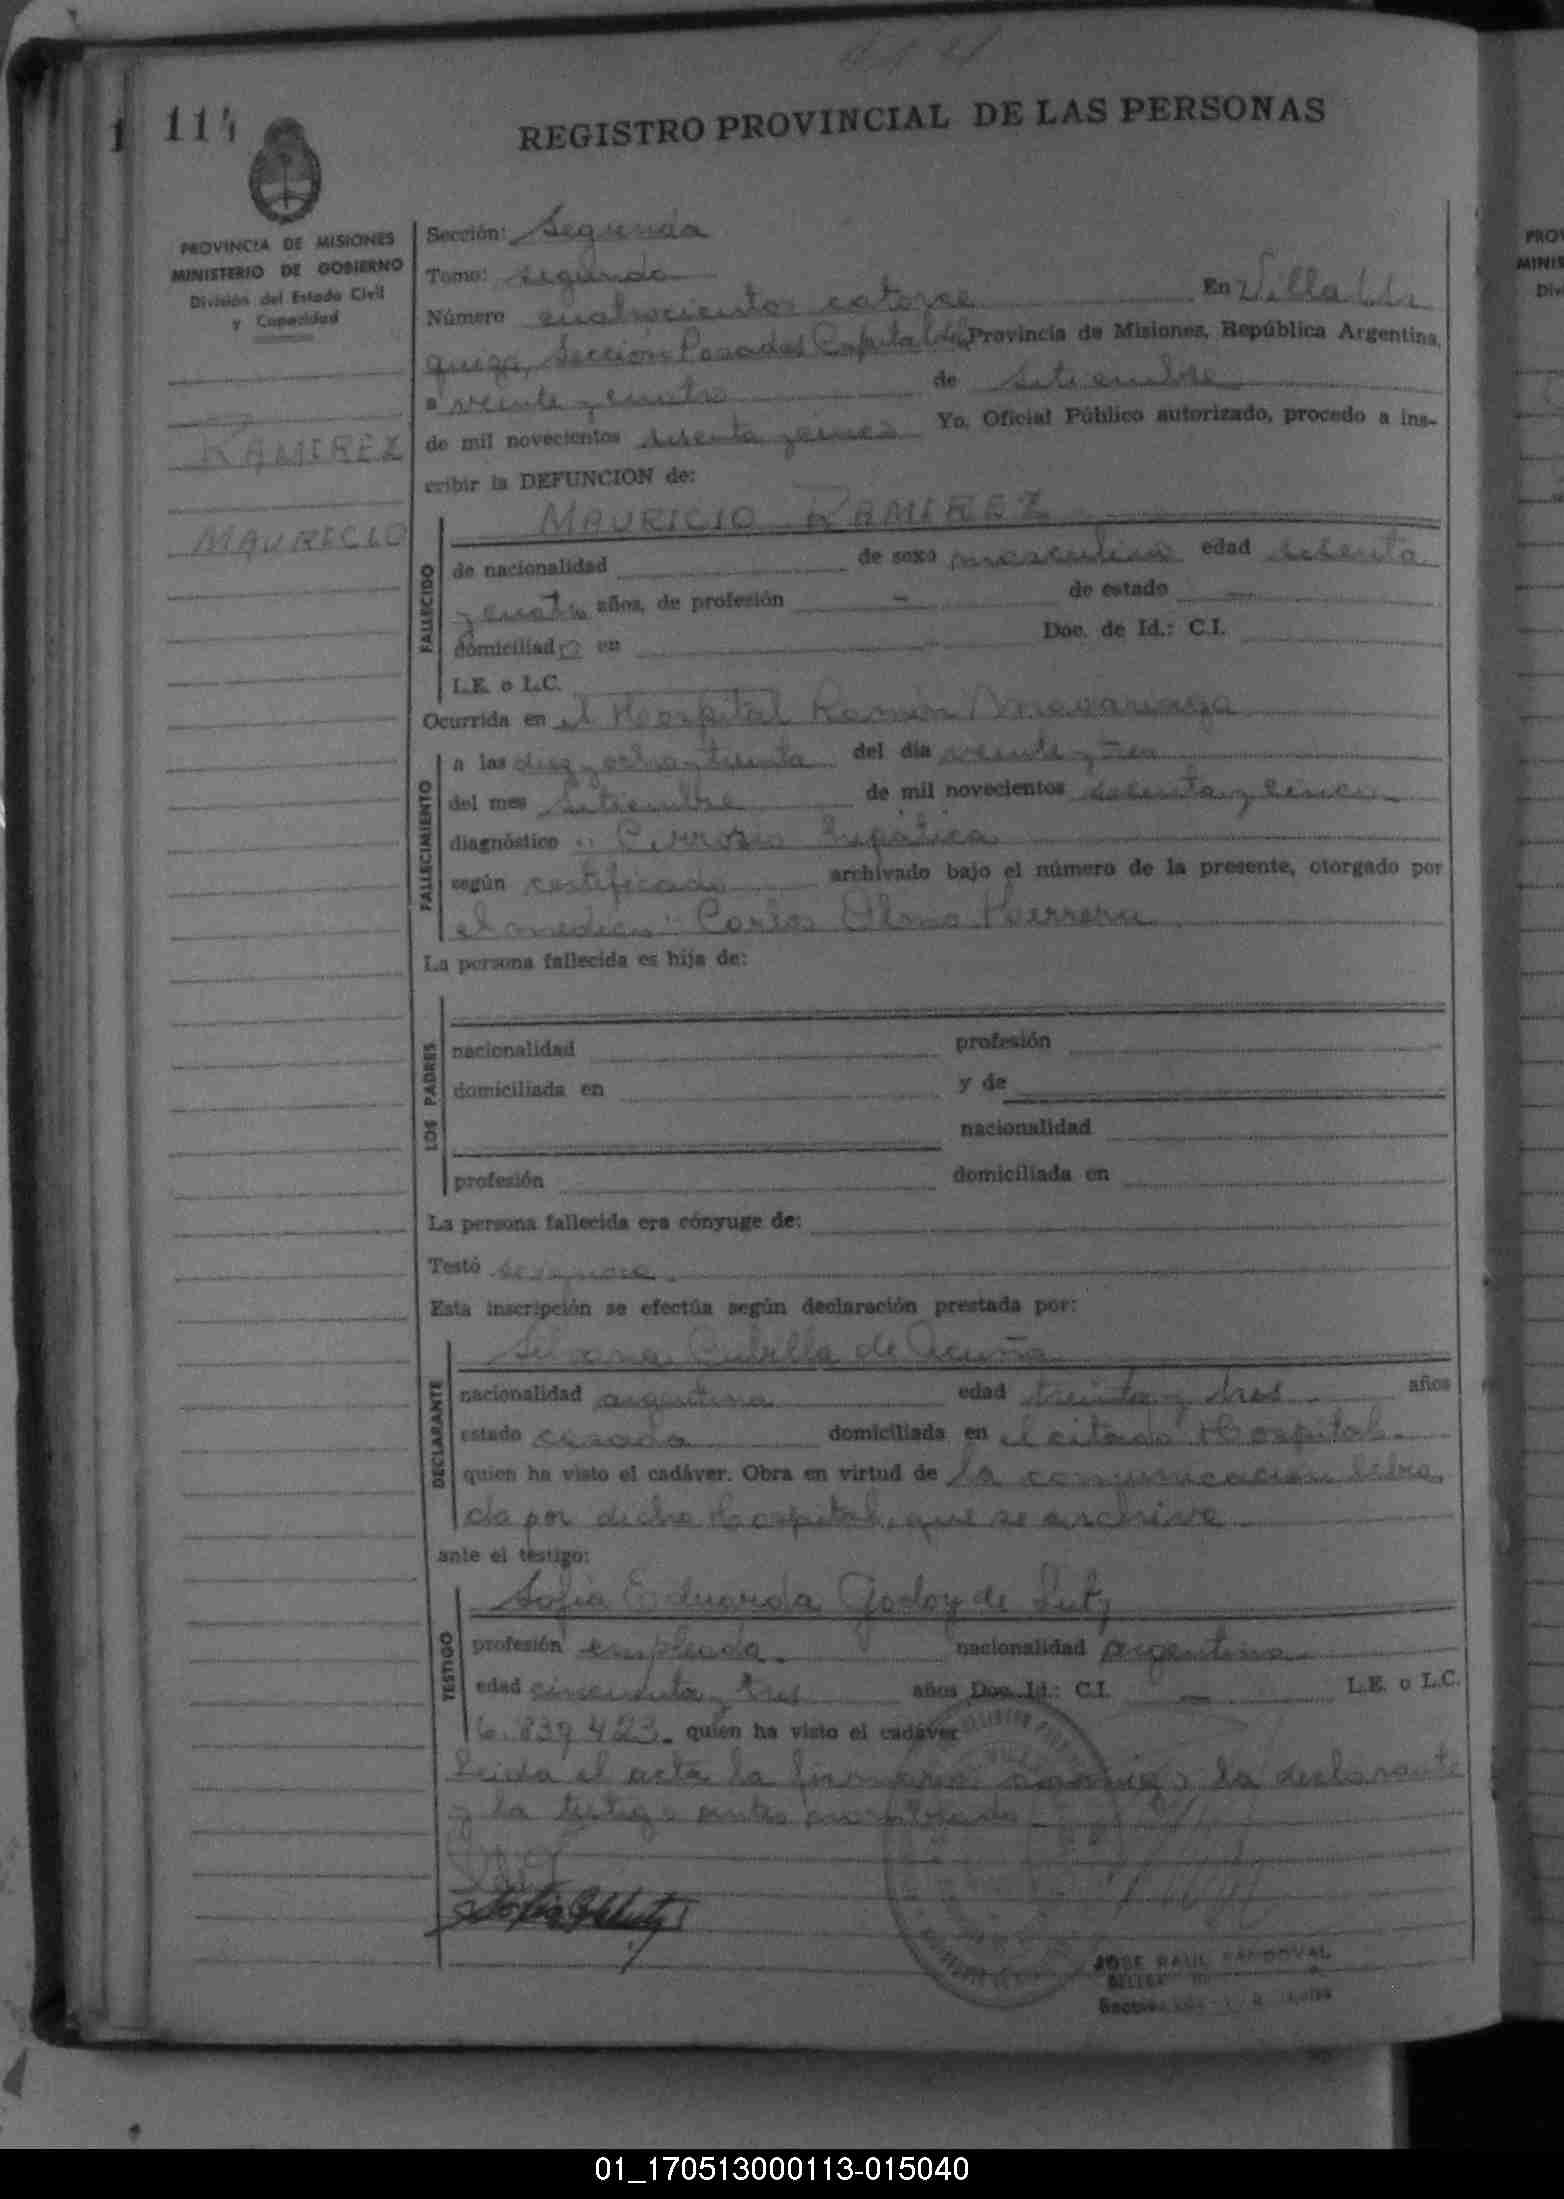 414
1 114
REGISTRO PROVINCIAL DE LAS PERSONAS
PROVINCIA DE MISIONES
MINISTERIO DE GOBIERNO
División del Estado Civil
y Capacidad
RAMIREZ
MAURICIO
Sección: Segunda
Tomo: segundo
Número cuatrocientos catorce En Villa Ur
quiza, Sección Posadas Capital de la Provincia de Misiones, República Argentina,
a veinte y cuatro de setiembre
de mil novecientos sesenta y cinco Yo, Oficial Público autorizado, procedo a ins-
cribir la DEFUNCION de:
MAURICIO RAMIREZ
FALLECIDO
de nacionalidad de sexo masculino edad sesenta
y cuatro años, de profesión — de estado —
domiciliado en Doc. de Id.: C.I.
L.E. o L.C.
Ocurrida en el Hospital Ramón Madariaga
FALLECIMIENTO
a las diez y ocho y treinta del día veinte y tres
del mes setiembre de mil novecientos sesenta y cinco
diagnóstico Cirrosis hepática
según certificado archivado bajo el número de la presente, otorgado por
el medico: Carlos Olmo Herrera
La persona fallecida es hija de:
LOS PADRES
nacionalidad profesión
domiciliada en y de
nacionalidad
profesión domiciliada en
La persona fallecida era cónyuge de:
Testó se ignora.
Esta inscripción se efectúa según declaración prestada por:
Cubilla de Acuña
DECLARANTE
nacionalidad argentina edad treinta y tres años
estado casada domiciliada en el citado Hospital.
quien ha visto el cadáver. Obra en virtud de la comunicación libra
da por dicho Hospital, que se archiva
ante el testigo:
Sofia Eduarda Godoy de Lutz
TESTIGO
profesión empleada. nacionalidad argentina
edad cincuenta y tres años Doc. Id.: C.I. — L.E. o L.C.
6.839.423. quien ha visto el cadáver
Leida el acta la firmaron conmigo, la declarante
y la testigo antes nombrada
JOSE RAUL SANDOVAL
PROV
MINIS
Div
01_170513000113-015040